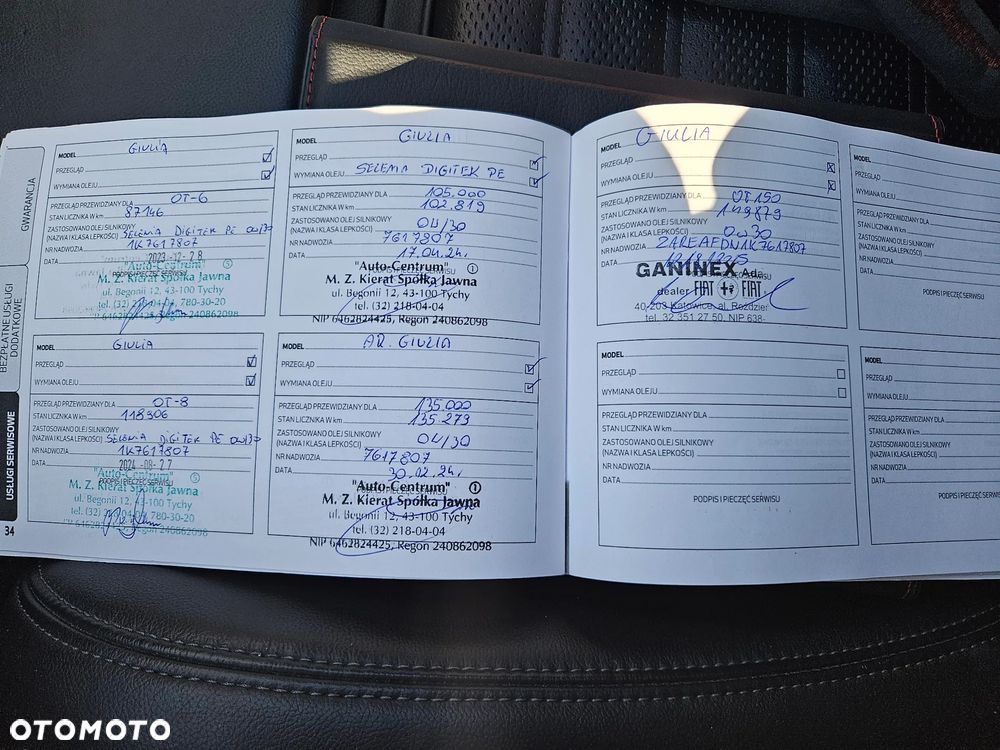 GWARANCJA
BEZPŁATNE USŁUGI
DODATKOWE
USŁUGI SERWISOWE
34
MODEL GIULIA
PRZEGLĄD
WYMIANA OLEJU
PRZEGLĄD PRZEWIDZIANY DLA OT-6
STAN LICZNIKA W km 87146
ZASTOSOWANO OLEJ SILNIKOWY
(NAZWA I KLASA LEPKOŚCI) SELENIA DIGITEK PE 0W/30
NR NADWOZIA 1K7617807
DATA 2023-12-28
PODPIS I PIECZĘĆ SERWISU
"Auto-Centrum"
M. Z. Kierat Spółka Jawna
ul. Begonii 12, 43-100 Tychy
tel. (32) 218-04-04, 780-30-20
NIP 6462824425, Regon 240862098
MODEL GIULIA
PRZEGLĄD
WYMIANA OLEJU SELEMA DIGITEK PE
PRZEGLĄD PRZEWIDZIANY DLA 105.000
STAN LICZNIKA W km 102.819
ZASTOSOWANO OLEJ SILNIKOWY
(NAZWA I KLASA LEPKOŚCI) 04/30
NR NADWOZIA 7617807
DATA 17.04.24r.
"Auto-Centrum" ①
M. Z. Kierat Spółka Jawna
ul. Begonii 12, 43-100 Tychy
tel. (32) 218-04-04
NIP 6462824425, Regon 240862098
MODEL GIULIA
PRZEGLĄD
WYMIANA OLEJU
PRZEGLĄD PRZEWIDZIANY DLA OT-8
STAN LICZNIKA W km 118306
ZASTOSOWANO OLEJ SILNIKOWY
(NAZWA I KLASA LEPKOŚCI) SELENIA DIGITEK PE 0W/30
NR NADWOZIA 1K7617807
DATA 2024-08-27
PODPIS I PIECZĘĆ SERWISU
"Auto-Centrum"
M. Z. Kierat Spółka Jawna
ul. Begonii 12, 43-100 Tychy
tel. (32) 218-04-04, 780-30-20
Regon 240862098
MODEL AR. GIULIA
PRZEGLĄD
WYMIANA OLEJU
PRZEGLĄD PRZEWIDZIANY DLA 135.000
STAN LICZNIKA W km 135.279
ZASTOSOWANO OLEJ SILNIKOWY
(NAZWA I KLASA LEPKOŚCI) 04/30
NR NADWOZIA 7617807
DATA 30.02.24r.
"Auto-Centrum" ①
M. Z. Kierat Spółka Jawna
ul. Begonii 12, 43-100 Tychy
tel. (32) 218-04-04
NIP 6462824425, Regon 240862098
MODEL GIULIA
PRZEGLĄD
WYMIANA OLEJU
PRZEGLĄD PRZEWIDZIANY DLA OT150
STAN LICZNIKA W km 149879
ZASTOSOWANO OLEJ SILNIKOWY
(NAZWA I KLASA LEPKOŚCI) 0w30
NR NADWOZIA ZAREAEDN1K7617807
DATA
GANINEX Ad.
dealer FIAT FIAT
40-203 Katowice al. Roździeń
tel. 32 351 27 50, NIP 638-
MODEL
PRZEGLĄD
WYMIANA OLEJU
PRZEGLĄD PRZEWIDZIANY DLA
STAN LICZNIKA W km
ZASTOSOWANO OLEJ SILNIKOWY
(NAZWA I KLASA LEPKOŚCI)
NR NADWOZIA
DATA
PODPIS I PIECZĘĆ SERWISU
MODEL
PRZEGLĄD
WYMIANA OLEJU
PRZEGLĄD PRZEWIDZIANY DLA
STAN LICZNIKA W km
ZASTOSOWANO OLEJ SILNIKOWY
(NAZWA I KLASA LEPKOŚCI)
NR NADWOZIA
DATA
PODPIS I PIECZĘĆ SERWISU
MODEL
PRZEGLĄD
WYMIANA OLEJU
PRZEGLĄD PRZEWIDZIANY DLA
STAN LICZNIKA W km
ZASTOSOWANO OLEJ SILNIKOWY
(NAZWA I KLASA LEPKOŚCI)
NR NADWOZIA
DATA
PODPIS I PIECZĘĆ SERWISU
OTOMOTO